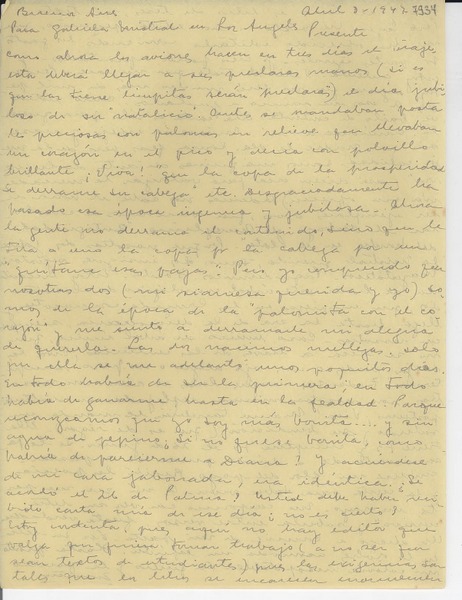 Buenos Aires Abril 3 - 1947. 7934
Para Gabriela Mistral en Los Angeles
Presente
Como ahora los aviones hacen en tres días el viaje,
esta deberá llegar a sus preclaras manos (si es
que las tiene limpitas serán "preclaras") el día jubi
loso de su natalicio. Antes se mandaban posta
les preciosas con palomas en relieve que llevaban
un corazón en el pico y decía con polvillo
brillante ¡Viva! "que la copa de la prosperidad
se derrame en su cabeza" etc. Desgraciadamente ha
pasado esa época ingenua y jubilosa. Ahora
la gente no derrama el contenido, sino que le
tira a uno la copa por la cabeza por un
"quítame esas pajas". Pero yo comprendo que
nosotras dos (mi siamesa querida y yo) so
mos de la época de la "palomita con el co
razón" y me siento a derramarle mi alegría
de quererla. Las dos nacimos mellizas, solo
que ella se me adelantó unos poquitos días.
En todo había de ser la primera; en todo
había de ganarme, hasta en la fealdad. Porque
reconozcamos que yo soy más bonita.... y sin
agua de pepino. Si no fuese bonita, ¿cómo
habría de parecerme a Diana? Y acuérdese
de mi cara jabonada, era idéntica. ¿Se
acordó el 26 de Palma? Usted debe haber reci
bido carta mía de ese día; ¿no es cierto?
Estoy indenta, pues aquí no hay editor que
valga que quiera tomar trabajo (a no ser que
sean textos de estudiantes) pues las exigencias son
tales que los libros se encarecen enormemente